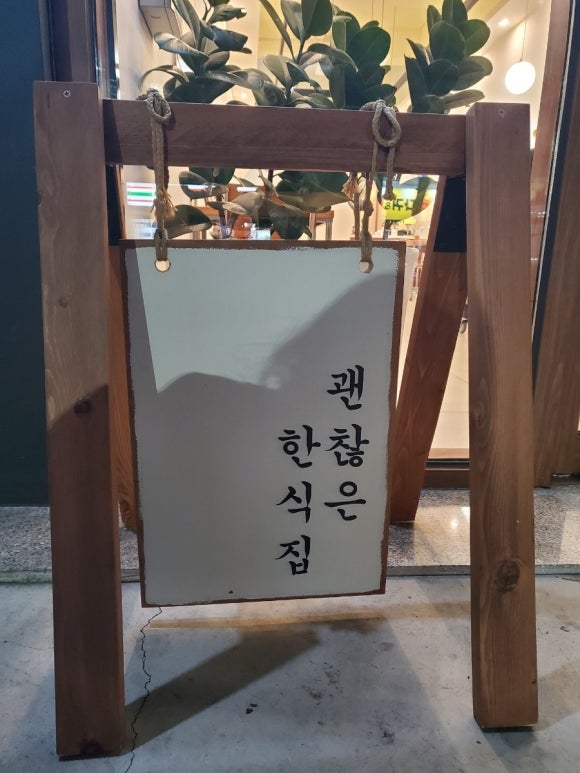 괜찮은
한식집